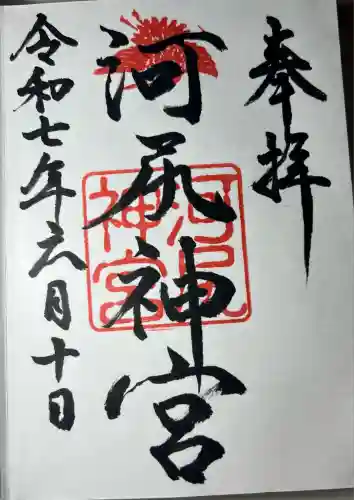 奉拝
河尻神宮
河尻神宮
令和七年六月十日